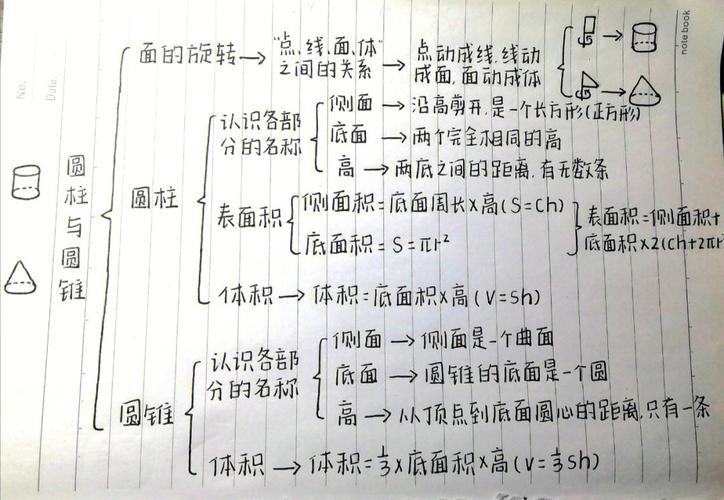 No.
Date.
note book
圆柱与圆锥
面的旋转→"点、线、面、体"之间的关系→点动成线.线动成面.面动成体
圆柱
认识各部分的名称
侧面→沿高剪开,是一个长方形(正方形)
底面→两个完全相同的高
高→两底之间的距离,有无数条
表面积
侧面积=底面周长×高(S=Ch)
底面积=S=πr²
表面积=侧面积+底面积×2(Ch+2πr
体积→体积=底面积×高(V=Sh)
圆锥
认识各部分的名称
侧面→侧面是一个曲面
底面→圆锥的底面是一个圆
高→从顶点到底面圆心的距离,只有一条
体积→体积=⅓×底面积×高(V=⅓Sh)